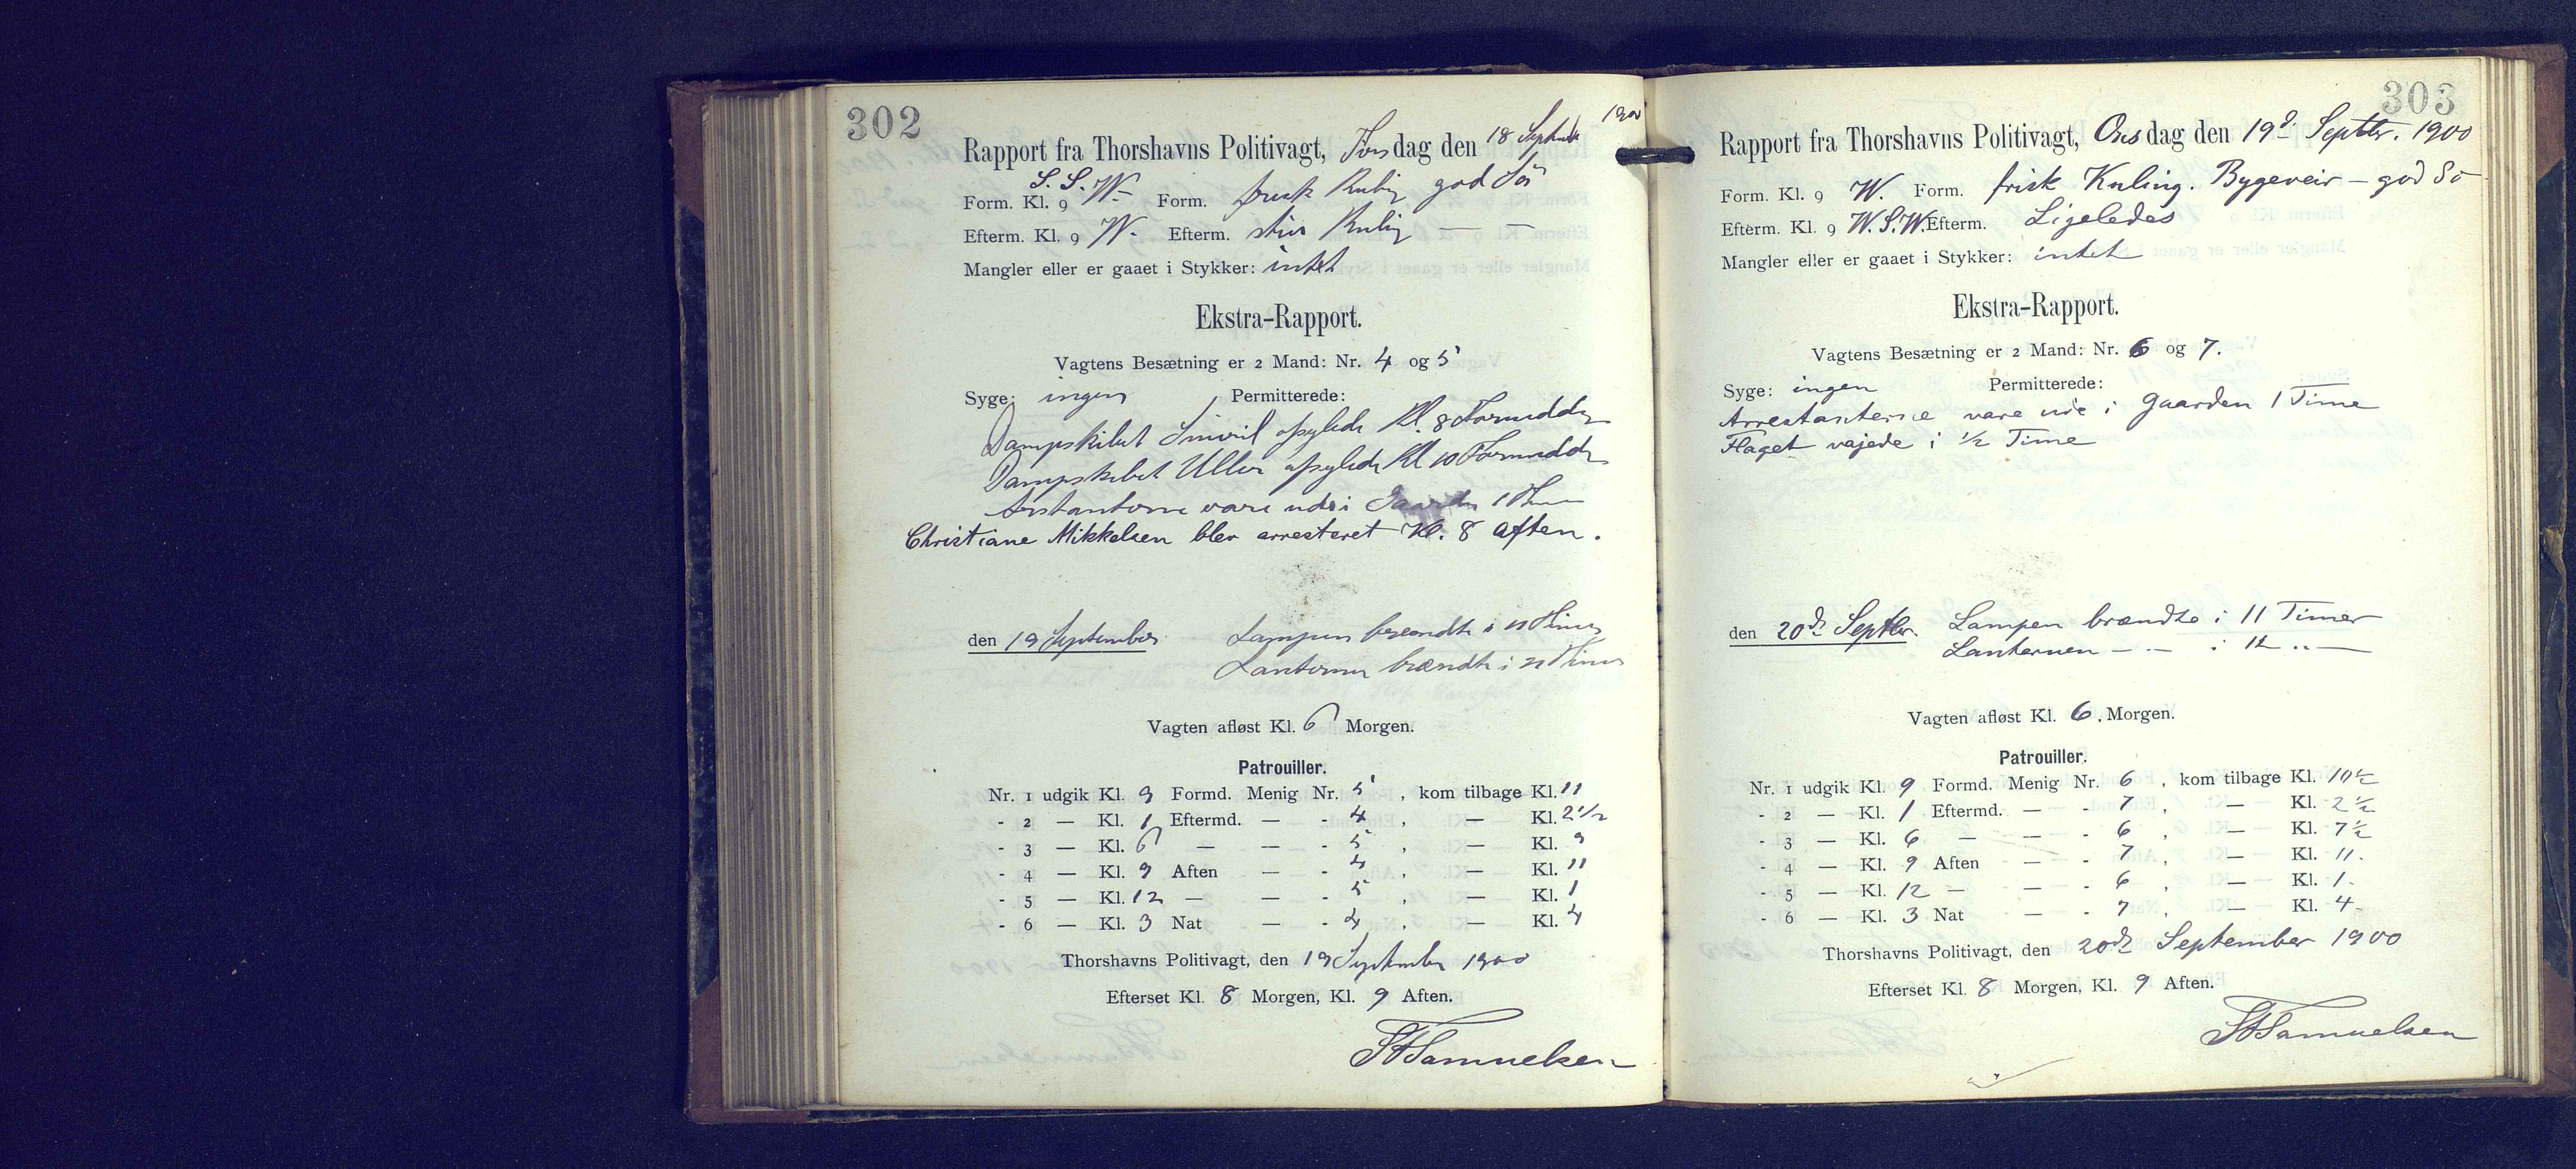 302
Rapport fra Thorshavns Politivagt, Tirsdag den 18 September 1900
Form. Kl. 9 S.S.W. Form. frisk Kuling god Sö
Efterm. Kl. 9 W. Efterm. stiv Kuling — —
Mangler eller er gaaet i Stykker: intet
Ekstra-Rapport.
Vagtens Besætning er 2 Mand: Nr. 4 og 5
Syge: ingen Permitterede:
Dampskibet Smiril afsejlede Kl. 8 Formiddag
Dampskibet Uller afsejlede Kl 10 Formiddag
Arrestanterne vare ude i Gaarden 1 Time
Christiane Mikkelsen blev arresteret Kl. 8 Aften.
den 19 September Lampen brændte i 11 Timer
Lanternen brændte i Timer
Vagten afløst Kl. 6 Morgen.
Patrouiller.
Nr. 1 udgik Kl. 9 Formd. Menig Nr. 5 , kom tilbage Kl. 11
- 2 — Kl. 1 Eftermd. — - 4 , — Kl. 2 1/2
- 3 — Kl. 6 — — - 5 , — Kl. 9
- 4 — Kl. 9 Aften — - 4 , — Kl. 11
- 5 — Kl. 12 — — - 5 , — Kl. 1
- 6 — Kl. 3 Nat — - 4 , — Kl. 4
Thorshavns Politivagt, den 19 September 1900
Efterset Kl. 8 Morgen, Kl. 9 Aften.
Samuelsen
303
Rapport fra Thorshavns Politivagt, Onsdag den 19d. Septbr. 1900
Form. Kl. 9 W. Form. frisk Kuling. Bygeveir — god Sö
Efterm. Kl. 9 W.S.W. Efterm. Ligeledes
Mangler eller er gaaet i Stykker: intet
Ekstra-Rapport.
Vagtens Besætning er 2 Mand: Nr. 6 og 7.
Syge: ingen Permitterede:
Arrestanterne vare ude i Gaarden 1 Time
Flaget vajede i 1/2 Time
den 20de Septbr. Lampen brændte i 11 Timer
Lanternen — — i 12 „ —
Vagten afløst Kl. 6. Morgen.
Patrouiller.
Nr. 1 udgik Kl. 9 Formd. Menig Nr. 6 , kom tilbage Kl. 10 1/2
- 2 — Kl. 1 Eftermd. — - 7 , — Kl. 2 1/2
- 3 — Kl. 6 — — - 6 , — Kl. 7 1/2
- 4 — Kl. 9 Aften — - 7 , — Kl. 11.
- 5 — Kl. 12 — — - 6 , — Kl. 1.
- 6 — Kl. 3 Nat — - 7 , — Kl. 4.
Thorshavns Politivagt, den 20de September 1900
Efterset Kl. 8 Morgen, Kl. 9 Aften.
Samuelsen